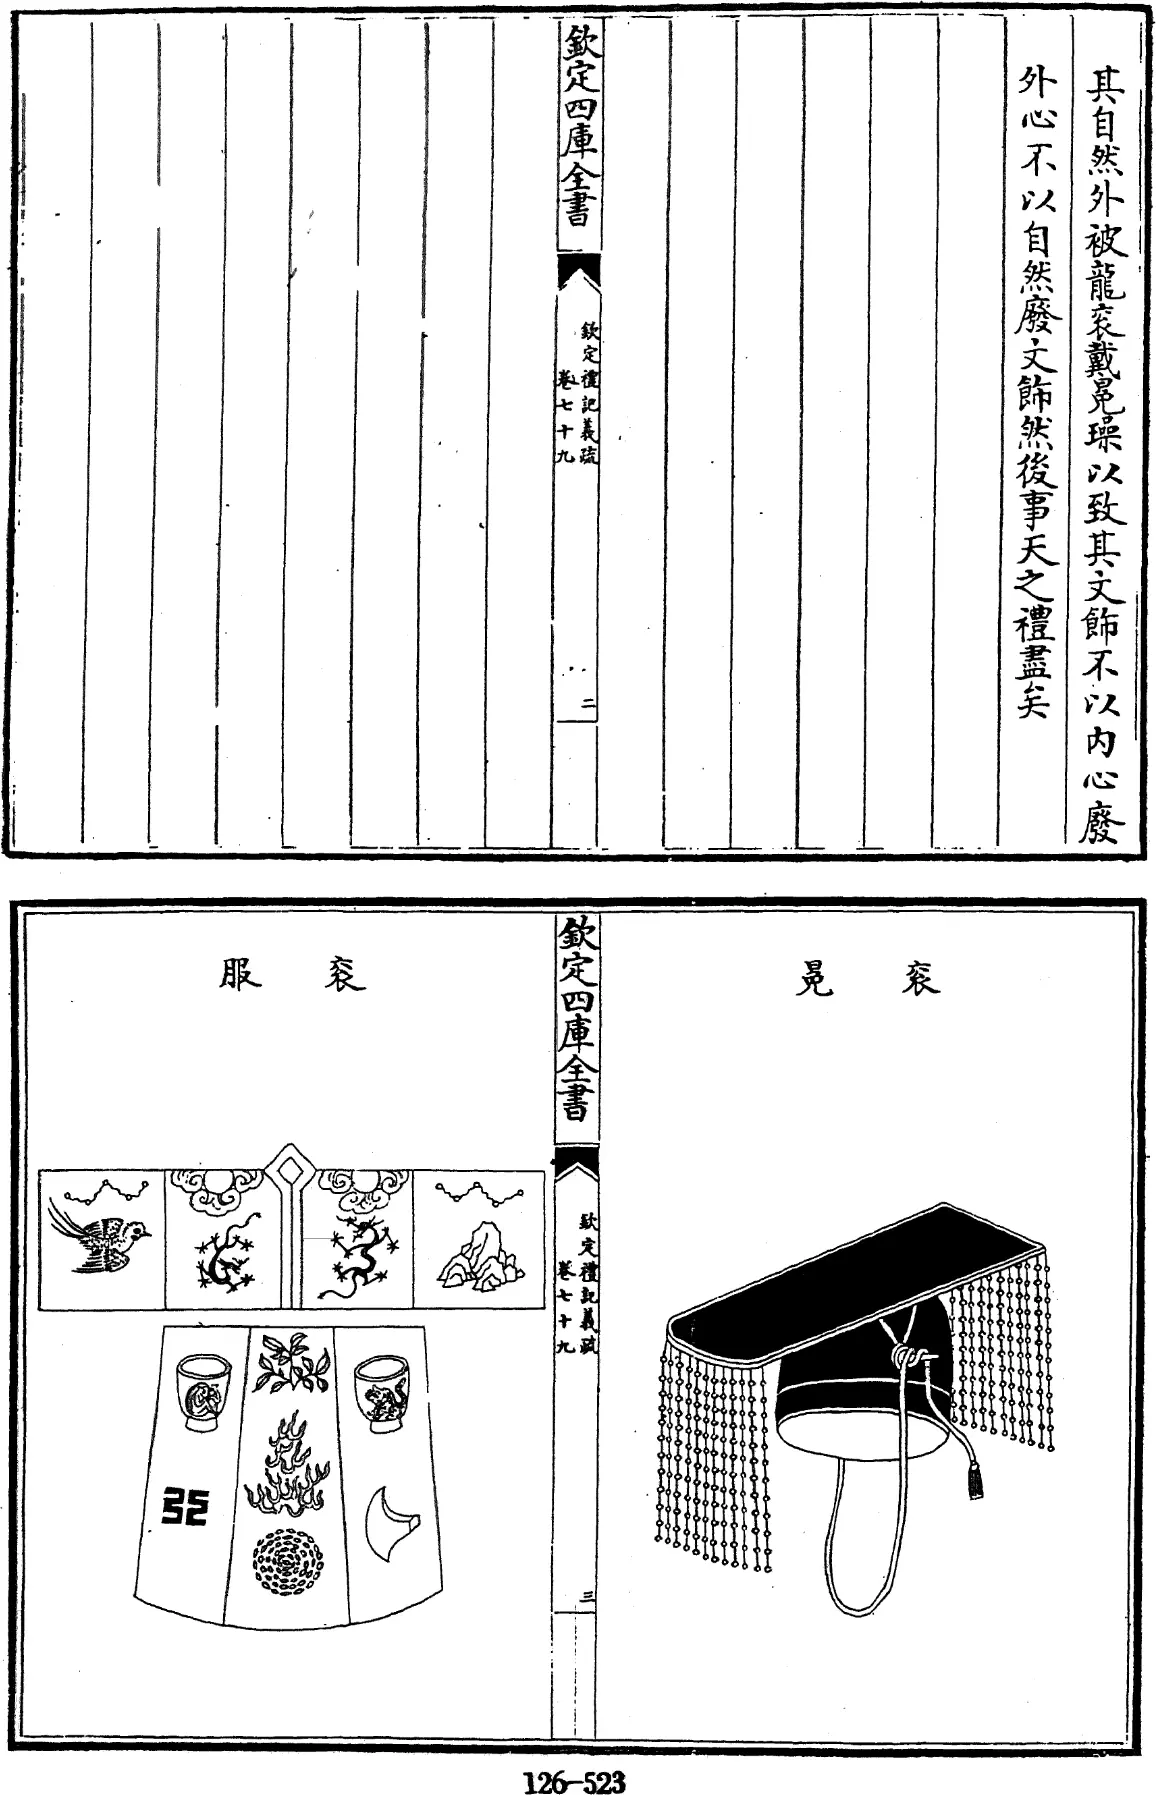 其自然外被龍衮戴冕璪以致其文飾不以内心廢
外心不以自然廢文飾然後事天之禮盡矣
欽定四庫全書
欽定禮記義疏
卷七十九
二
衮冕
欽定四庫全書
欽定禮記義疏
卷七十九
三
衮服
126-523